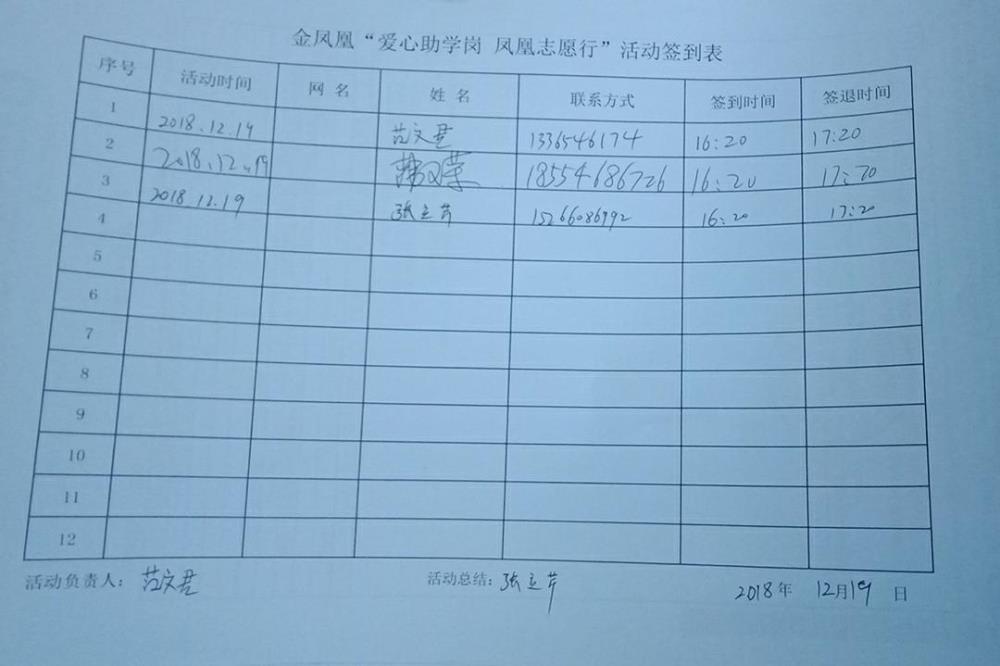 金凤凰“爱心助学岗 凤凰志愿行”活动签到表
序号 活动时间 网名 姓名 联系方式 签到时间 签退时间
1 2018.12.19 范文君 1336546174 16:20 17:20
2 2018.12.19 18554686726 16:20 17:20
3 2018.12.19 张立芹 15266086992 16:20 17:20
4
5
6
7
8
9
10
11
12
活动负责人：范文君 活动总结：张立芹 2018年 12月19 日